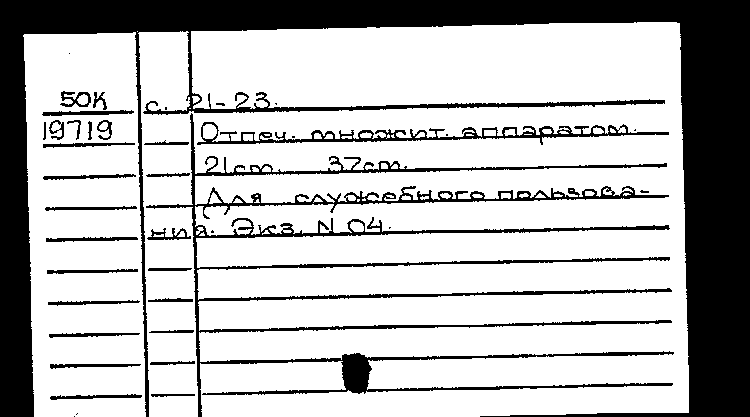 50К с. 21-23.
19719 Отпеч. множит. аппаратом.
21cm. 37cm.
Для служебного пользова-
ния. Экз. N 04.